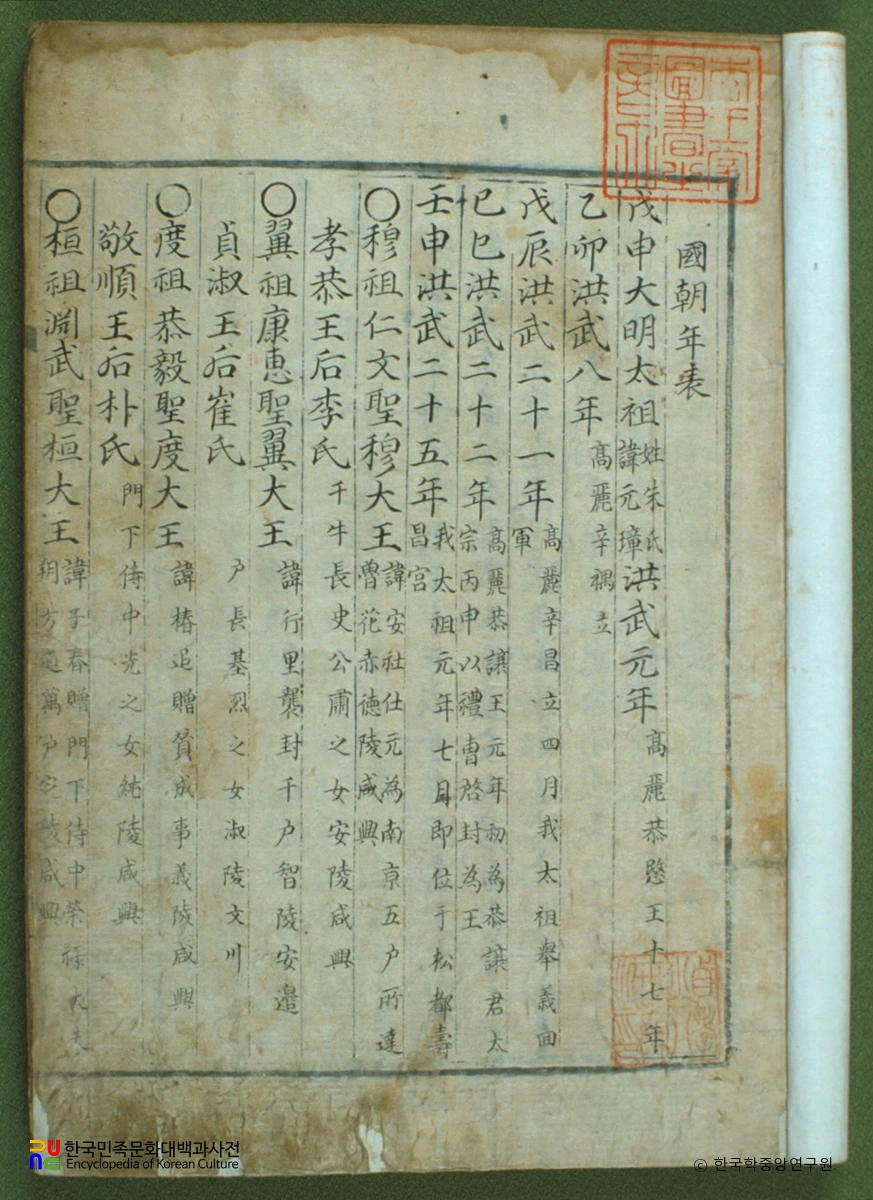 國朝年表
戊申大明太祖姓朱氏諱元璋洪武元年高麗恭愍王十七年
乙卯洪武八年高麗辛禑立
戊辰洪武二十一年高麗辛昌立四月我太祖舉義回軍
己巳洪武二十二年高麗恭讓王元年初為恭讓君太宗丙申以禮曹啓封為王
壬申洪武二十五年我太祖元年七月即位于松都壽昌宮
○穆祖仁文聖穆大王諱安社仕元為南京五户所達魯花赤德陵咸興
孝恭王后李氏千牛長史公肅之女安陵咸興
○翼祖康惠聖翼大王諱行里襲封千户智陵安邊
貞淑王后崔氏户長基烈之女淑陵文川
○度祖恭毅聖度大王諱椿追贈贊成事義陵咸興
敬順王后朴氏門下侍中光之女純陵咸興
○桓祖淵武聖桓大王諱子春贈門下侍中榮祿大夫朔方道萬户定陵咸興
圖書
한국민족문화대백과사전
Encyclopedia of Korean Culture
© 한국학중앙연구원